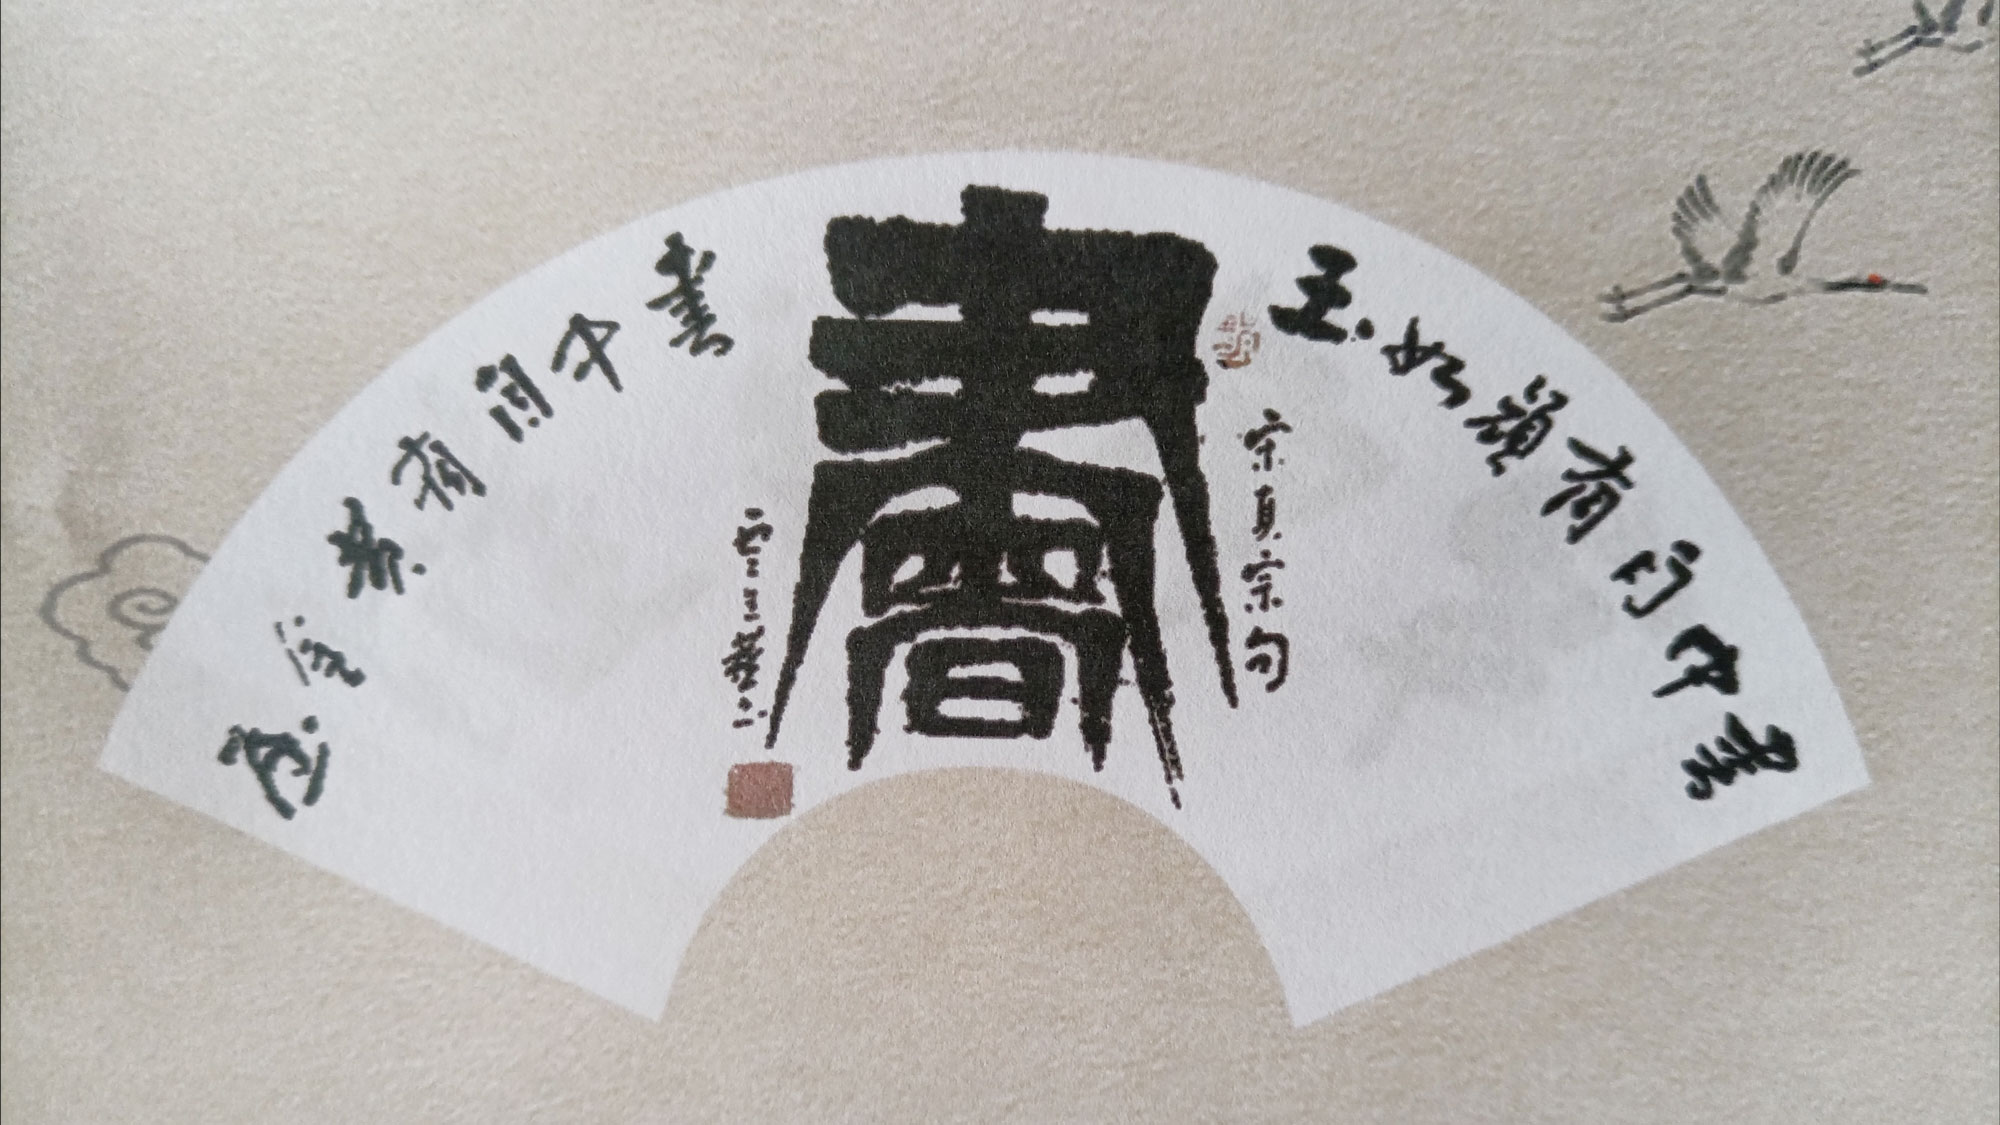 書中自有顏如玉
宋真宗句
書
書中自有黄金屋